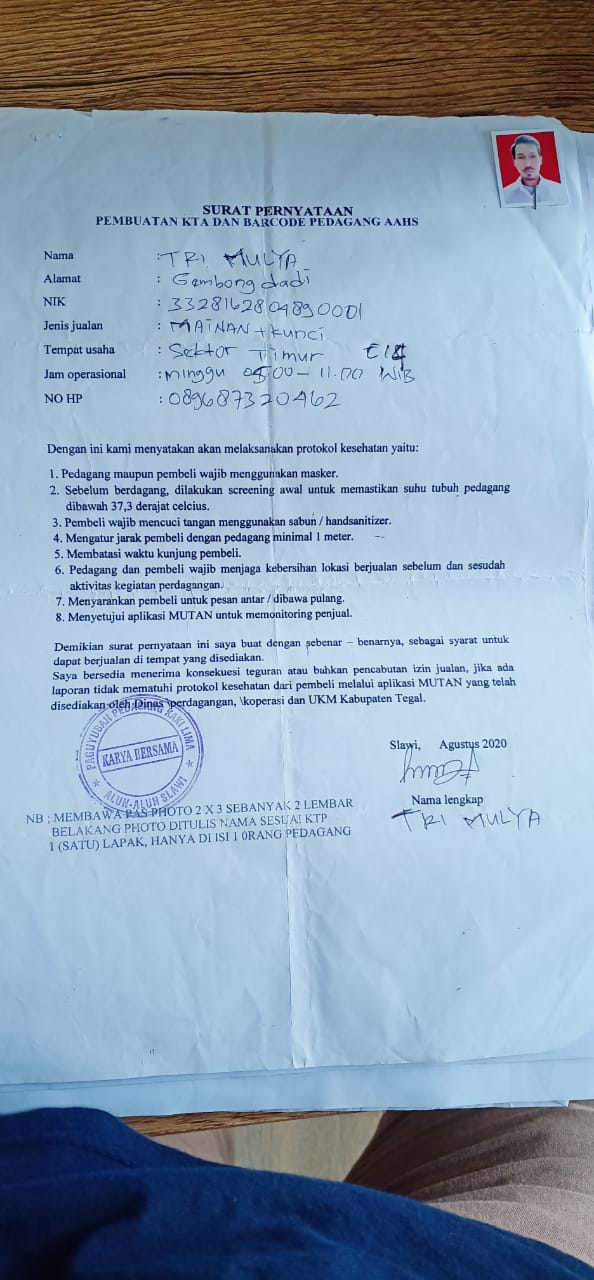 SURAT PERNYATAAN
PEMBUATAN KTA DAN BARCODE PEDAGANG AAHS
Nama : TRI MULYA
Alamat : Gembong dadi
NIK : 3328162804890001
Jenis jualan : MAINAN + kunci
Tempat usaha : Sektor Timur
Jam operasional : minggu 0500 - 11.00 WIB
NO HP : 089687320462
Dengan ini kami menyatakan akan melaksanakan protokol kesehatan yaitu:
1. Pedagang maupun pembeli wajib menggunakan masker.
2. Sebelum berdagang, dilakukan screening awal untuk memastikan suhu tubuh pedagang
dibawah 37,3 derajat celcius.
3. Pembeli wajib mencuci tangan menggunakan sabun / handsanitizer.
4. Mengatur jarak pembeli dengan pedagang minimal 1 meter.
5. Membatasi waktu kunjung pembeli.
6. Pedagang dan pembeli wajib menjaga kebersihan lokasi berjualan sebelum dan sesudah
aktivitas kegiatan perdagangan.
7. Menyarankan pembeli untuk pesan antar / dibawa pulang.
8. Menyetujui aplikasi MUTAN untuk memonitoring penjual.
Demikian surat pernyataan ini saya buat dengan sebenar – benarnya, sebagai syarat untuk
dapat berjualan di tempat yang disediakan.
Saya bersedia menerima konsekuesi teguran atau bahkan pencabutan izin jualan, jika ada
laporan tidak mematuhi protokol kesehatan dari pembeli melalui aplikasi MUTAN yang telah
disediakan oleh Dinas \perdagangan, \koperasi dan UKM Kabupaten Tegal.
PAGUYUBAN PEDAGANG KAKI LIMA
KARYA BERSAMA
ALUN-ALUN SLAWI
Slawi, Agustus 2020
Nama lengkap
TRI MULYA
NB ; MEMBAWA PAS PHOTO 2 X 3 SEBANYAK 2 LEMBAR
BELAKANG PHOTO DITULIS NAMA SESUAI KTP
1 (SATU) LAPAK, HANYA DI ISI 1 0RANG PEDAGANG